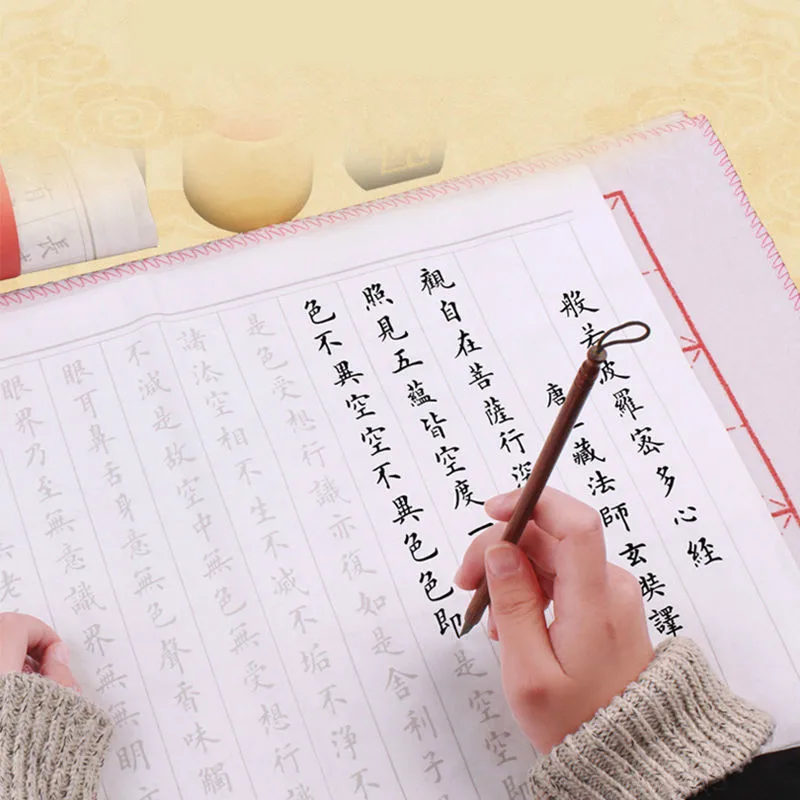 般若波羅密多心經
唐三藏法師玄奘譯
觀自在菩薩行深
照見五蘊皆空度一
色不異空空不異色色即是空空
是色受想行識亦復如是舍利子
諸法空相不生不滅不垢不淨不
不減是故空中無色無受想行
眼耳鼻舌身意無色聲香味觸
眼界乃至無意識界無無明
老
長